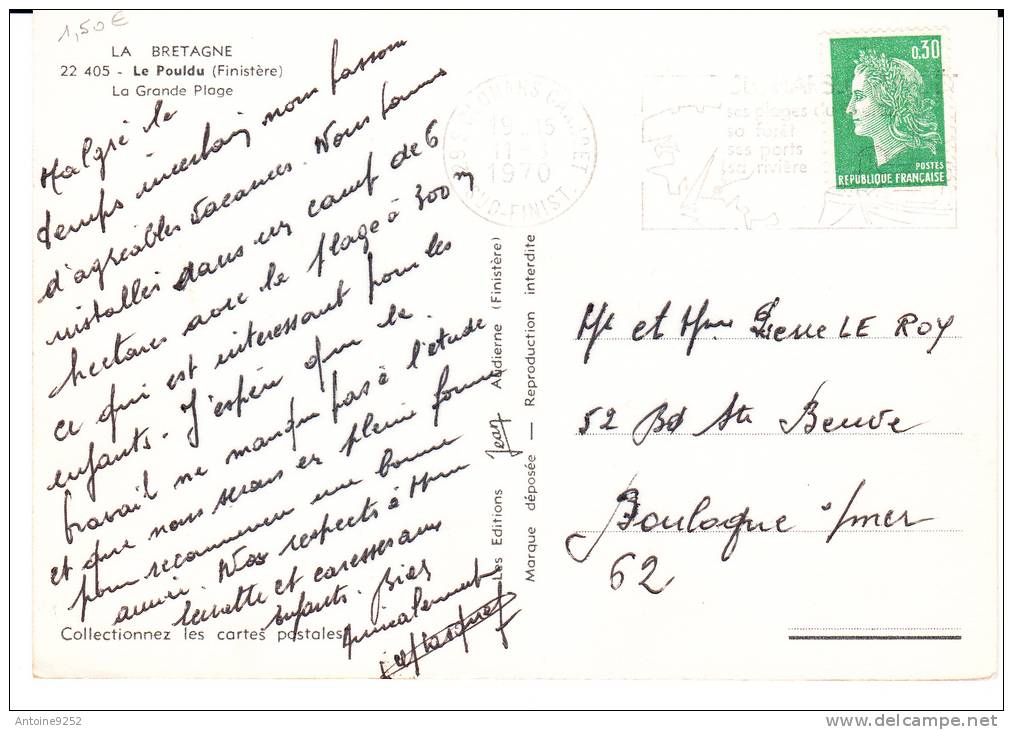 1,50€
LA BRETAGNE
22 405 - Le Pouldu (Finistère)
La Grande Plage
Malgré le
temps incertain nous passons
d'agréables vacances. Nous sommes
installés dans un camp de 6
hectares avec la plage à 300 m
ce qui est intéressant pour les
enfants. J'espère que le
travail ne manque pas à l'étude
et que nous serons en pleine forme
pour recommencer une bonne
année. Nos respects à Mme
et caresses aux
enfants. Bien
amicalement
Collectionnez les cartes postales
Les Editions Jean Audierne (Finistère)
Marque déposée — Reproduction interdite
19 - 15
1970
SUD-FINIST.
ses plages
sa forêt
ses ports
sa rivière
0,30
POSTES
REPUBLIQUE FRANÇAISE
Mr et Mme Pierre LE ROY
52 Bd Ste Beuve
Boulogne s/mer
62
Antoine9252
delcampe.net